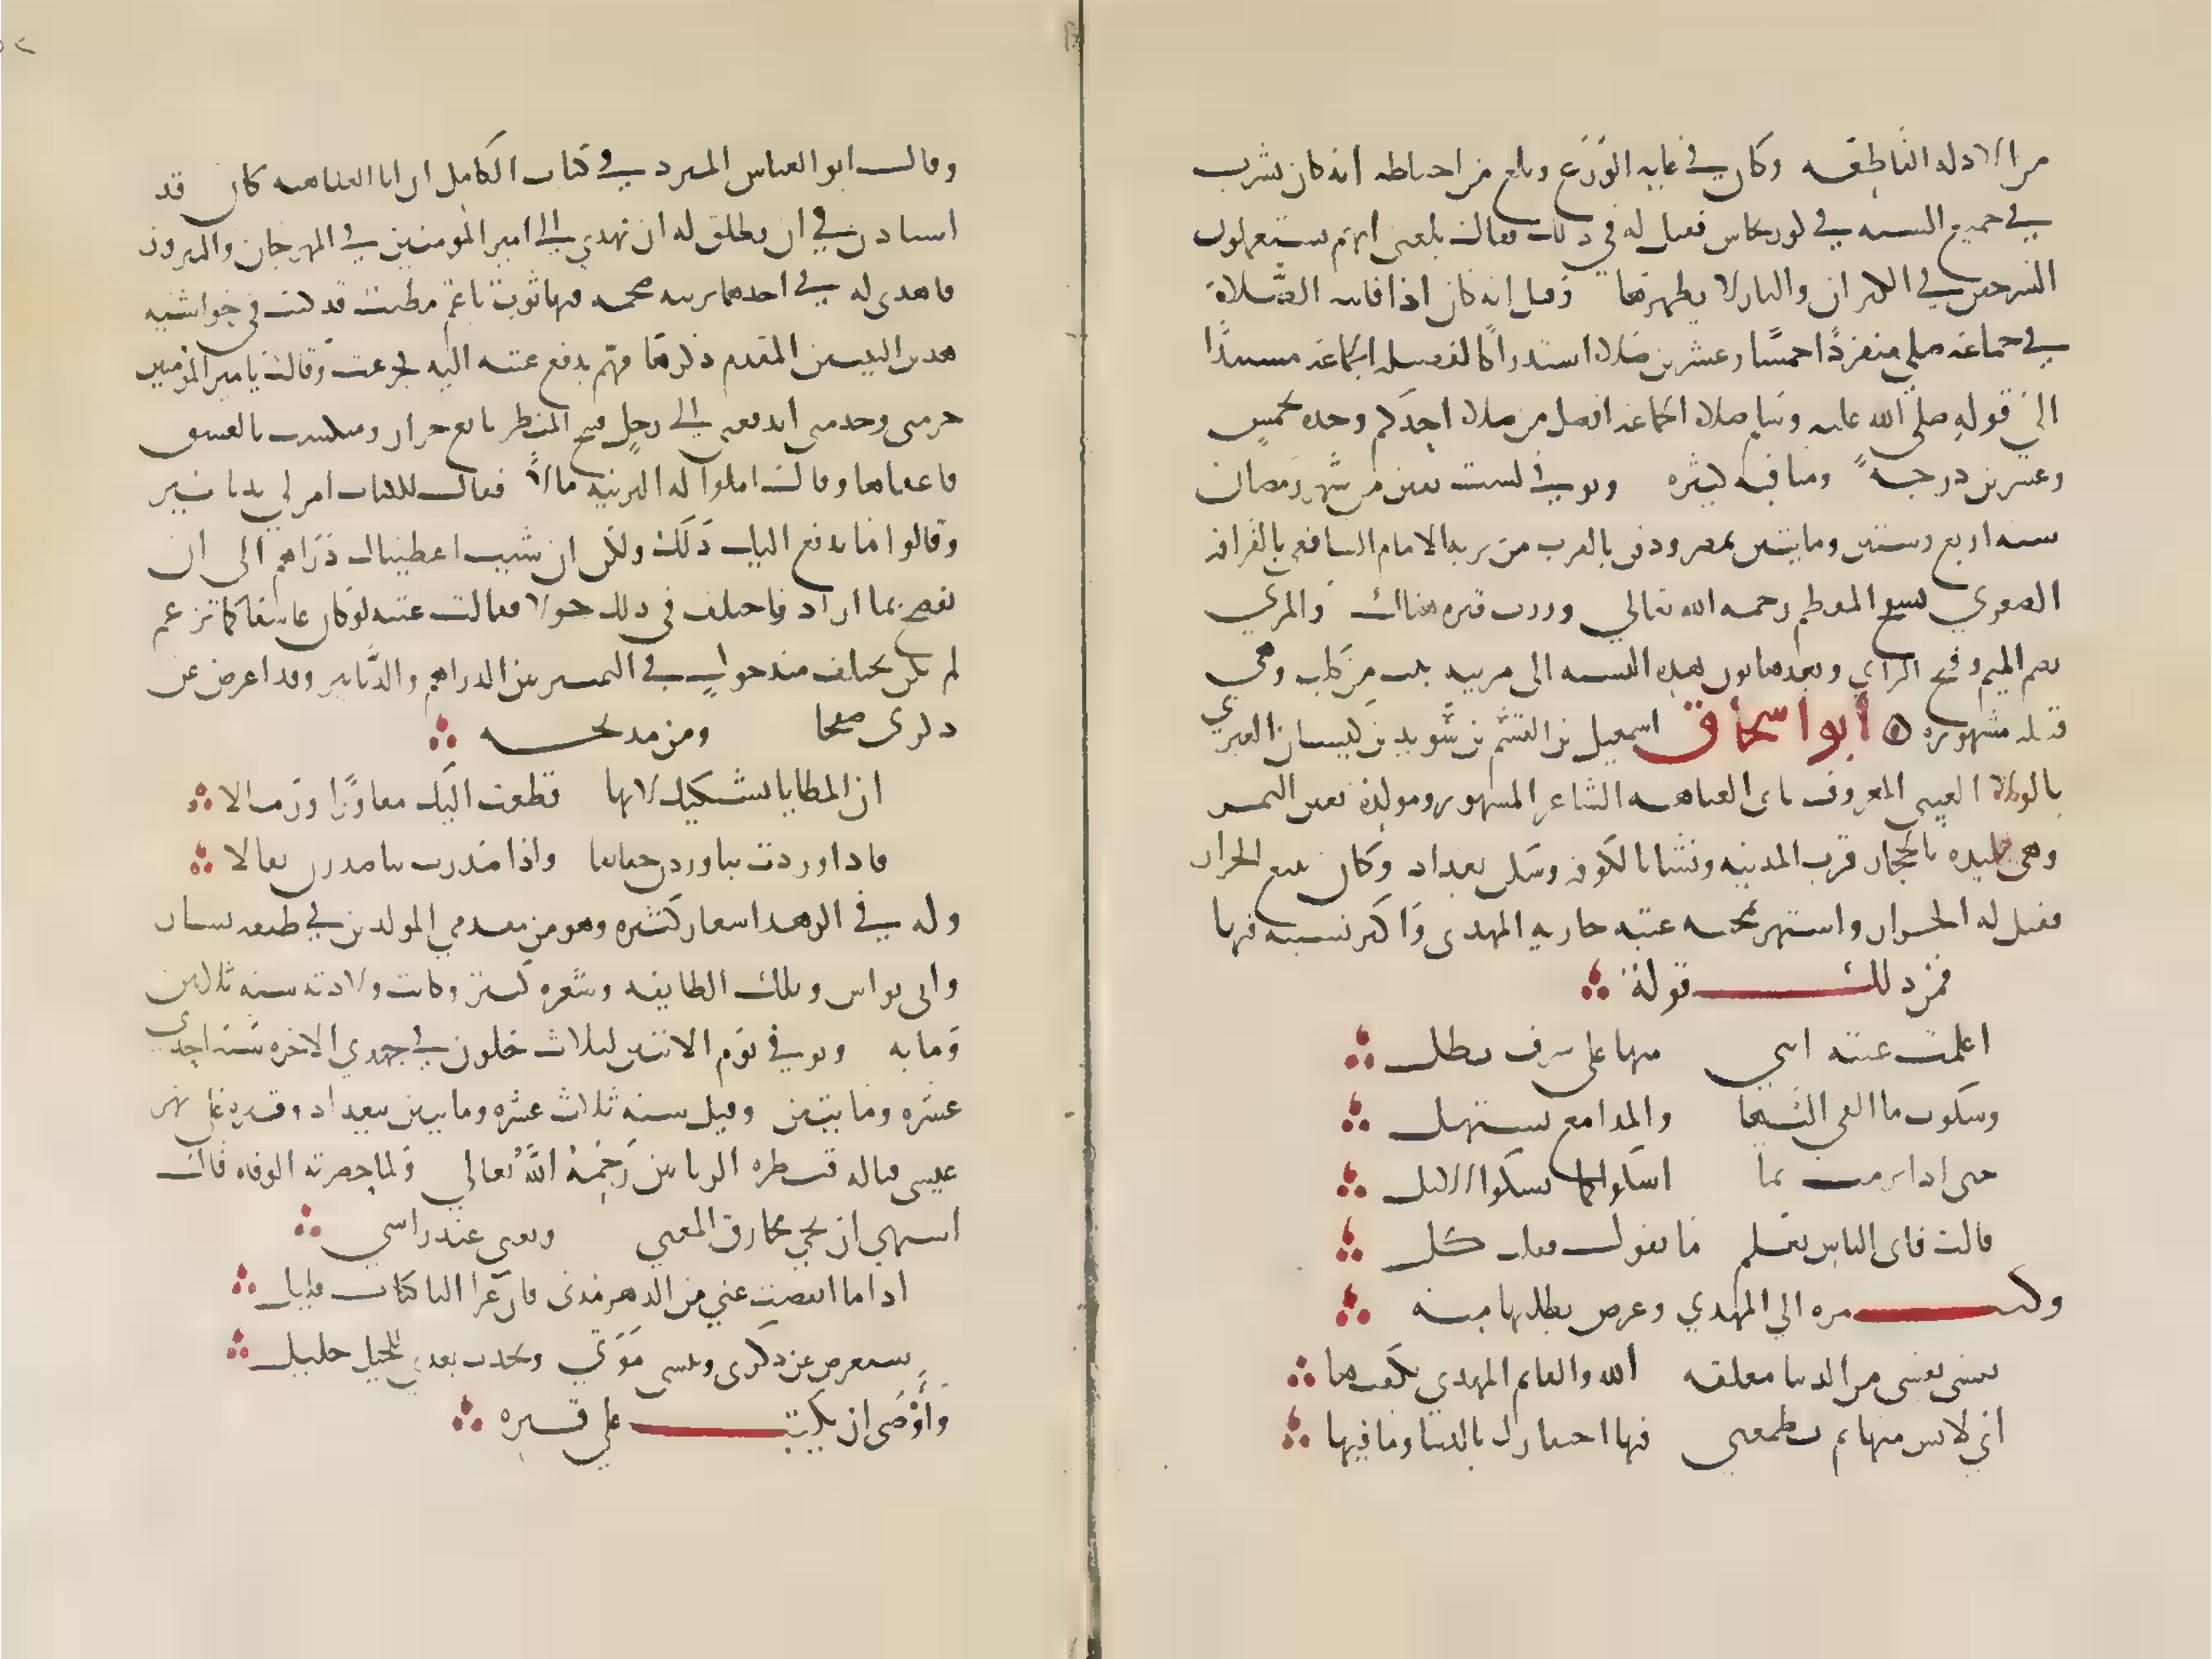 من الادلة الناطقه وكان في غاية الورع وبلغ من احتياطه انه كان يشرب
في جميع السنه في كوز نحاس فقيل له في ذلك فقال بلغني انهم يستعملون
السرجين في الكيزان والنار لا يطهرها وقيل انه كان اذا فاتته الصلاة
في جماعة صلى منفردًا خمسًا وعشرين صلاة استدراكا لفضيلة الجماعة مستندًا
الى قوله صلى الله عليه وسلم صلاة الجماعة افضل من صلاة احدكم وحده بخمس
وعشرين درجةً ومناقبه كثيره وتوفي لست بقين من شهر رمضان
سنه اربع وستين ومايتين بمصر ودفن بالقرب من تربة الامام الشافعي بالقرافة
الصغرى بسفح المقطم رحمه الله تعالى وزرت قبره هناك والمزني
بضم الميم وفتح الزاي وبعدها نون هذه النسبه الى مزينه بنت كلب وهي
قبيله مشهوره أبو اسحاق اسمعيل بن القسم بن سويد بن كيسان العنزي
بالولاء العيني المعروف بابي العتاهيه الشاعر المشهور ومولده بعين التمر
وهي بليده بالحجاز قرب المدينه ونشا بالكوفه وسكن بغداد وكان يبيع الجرار
فقيل له الجرار واشتهر بمحبه عتبه جاريه المهدى واكثر نسيبه فيها
فمن ذلك قوله
اعلمت عتبه انني منها على شرف مطل
وشكوت ما القى اليها والمدامع تستهل
حتى اذا برمت بما اشكو كما يشكوا الاقل
قالت فاي الناس يعلم ما تقول فقلت كل
وكتب مره الى المهدي وعرض بطلبها منه
نفسى بشى من الدنيا معلقه الله والقايم المهدي يكفيها
اني لايس منها ثم يطمعني فيها احتقارك بالدنيا وما فيها
وقال ابو العباس المبرد في كتاب الكامل ان ابا العتاهيه كان قد
استاذن في ان يطلق له ان يهدي الى امير المومنين في المهرجان والنيروز
فاهدى له في احدهما برنيه ضخمه فيها ثوب ناعم مطيب قد كتب في حواشيه
هذين البيتين المقدم ذكرهما فهم بدفع عتبه اليه فجزعت وقالت يا امير المومنين
حرمتي وخدمتي اتدفعني الى رجل قبيح المنظر بايع جرار ومتكسب بالعشق
فاعفاها وقال املوا له البرنيه مالاً فقال للكتاب امر لي بدنانير
وقالوا ما ندفع اليك ذلك ولكن ان شيت اعطيناك دراهم الى ان
يفصح بما اراد فاختلف في ذلك حولا فقالت عتبه لو كان عاشقا كما يزعم
لم يكن يختلف منذ حول في التمييز بين الدراهم والدنانير وقد اعرض عن
ذكرى صفحا ومن مديحه
ان المطايا تشتكيك لانها قطعت اليك مفاوزًا ورمالا
فاذا وردن بنا وردن خفايفا واذا صدرن بنا صدرن ثقالا
وله في الزهد اشعار كثيره وهو من متقدمي المولدين في طبقه بشار
وابي نواس وتلك الطايفه وشعره كثير وكانت ولادته سنه ثلاثين
ومايه وتوفي يوم الاثنين لثلاث خلون في جمدي الاخره سنة احدى
عشره ومايتين وقيل سنه ثلاث عشره ومايتين ببغداد وقبره على نهر
عيسى قباله قنطره الزياتين رحمه الله تعالى ولما حضرته الوفاه قال
اشتهي ان يجي مخارق المغني ويغني عند راسي
اذا ما انقضت عني من الدهر مدتي فان عزا الباكيات قليل
سيعرض عن ذكرى وتنسى مودتي ويحدث بعدي للخليل خليل
وأوصى ان يكتب على قبره